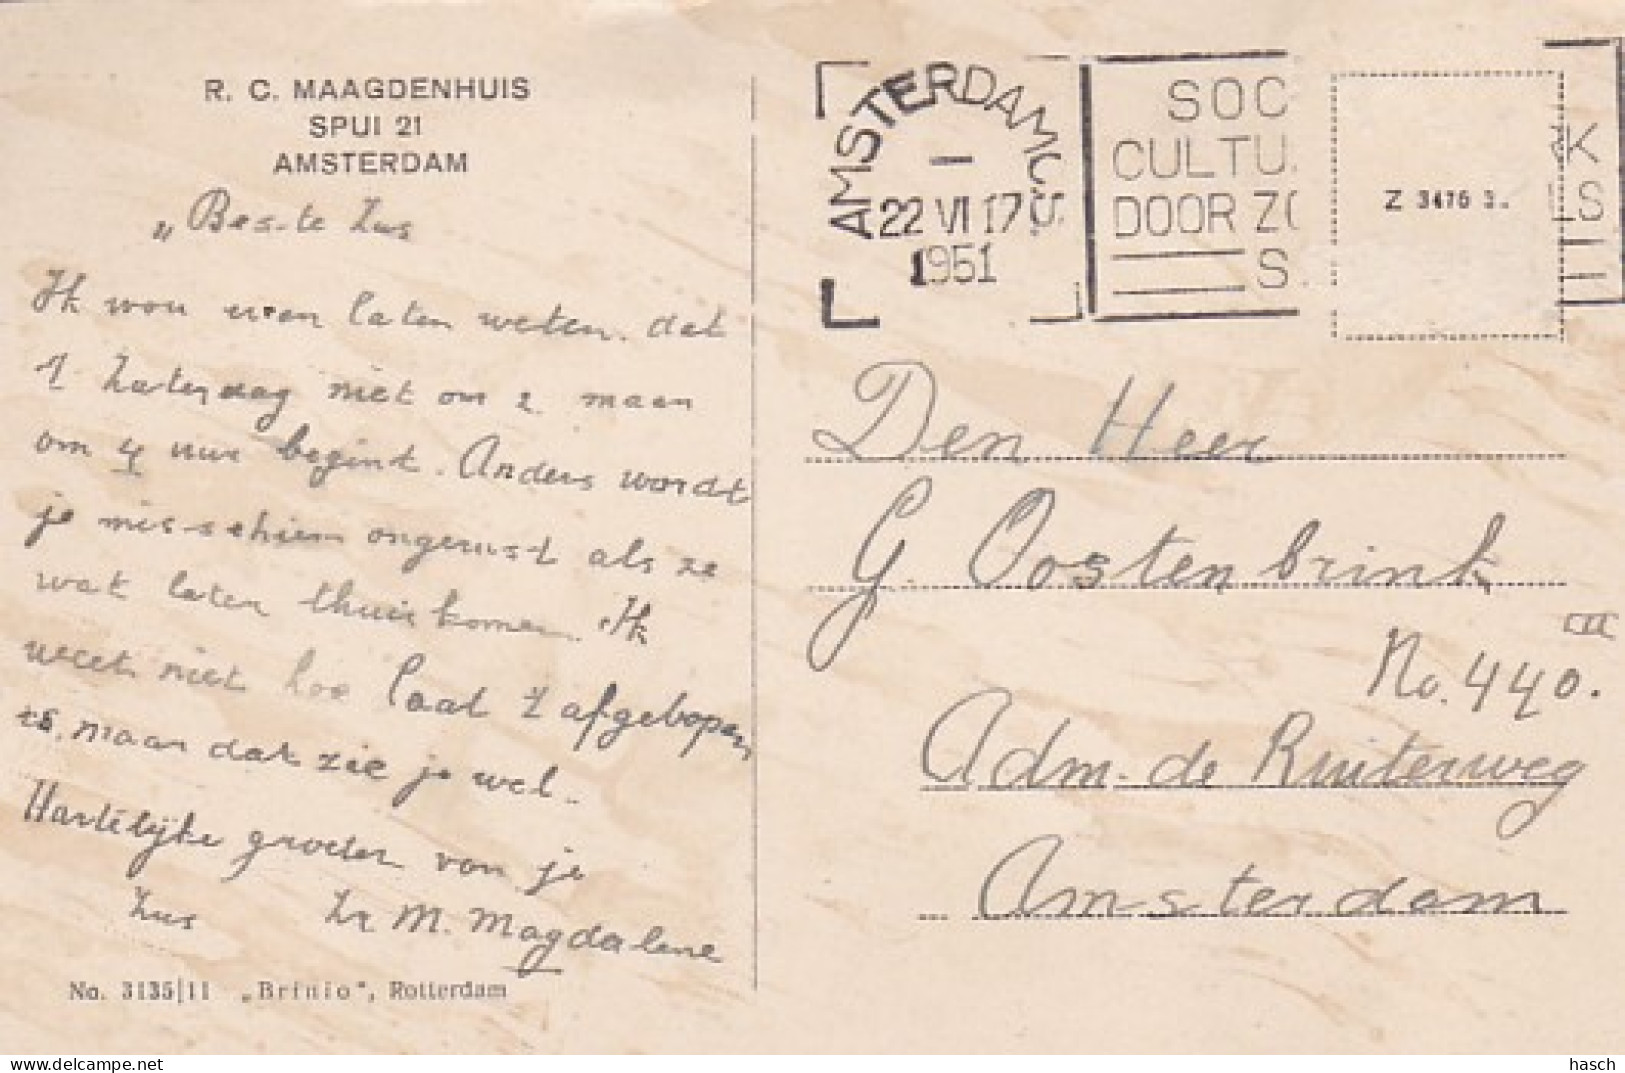 R. C. MAAGDENHUIS
SPUI 21
AMSTERDAM
„ Bes-te Zus
Ik wou even laten weten. dat
't Zaterdag niet om 2 maar
om 4 uur begint. Anders wordt
je mis-schien ongerust als ze
wat later thuis komen. Ik
weet niet hoe laat 't afgelopen
is, maar dat zie je wel.
Hartelijke groeten van je
Zus Zr M. Magdalene
No. 3135|11 „Brinio", Rotterdam
AMSTERDAM CS
22 VI 17
1951
SOC
CULTU
DOOR ZO K
S. LS
Z 3476 3.
Den Heer
G. Oostenbrink
III
No. 440.
Adm. de Ruiterweg
Amsterdam
hasch
© delcampe.net